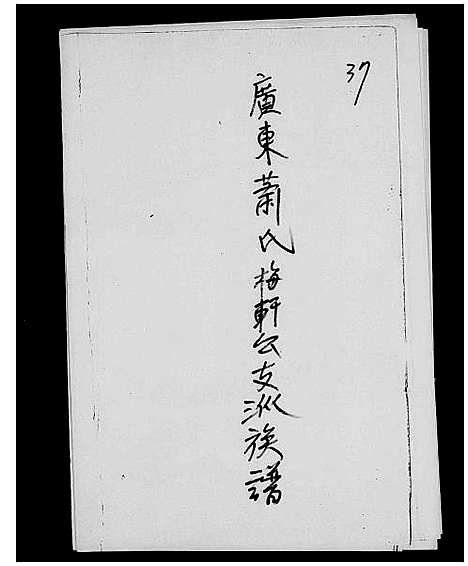 37
廣東蕭氏梅軒公支派族譜